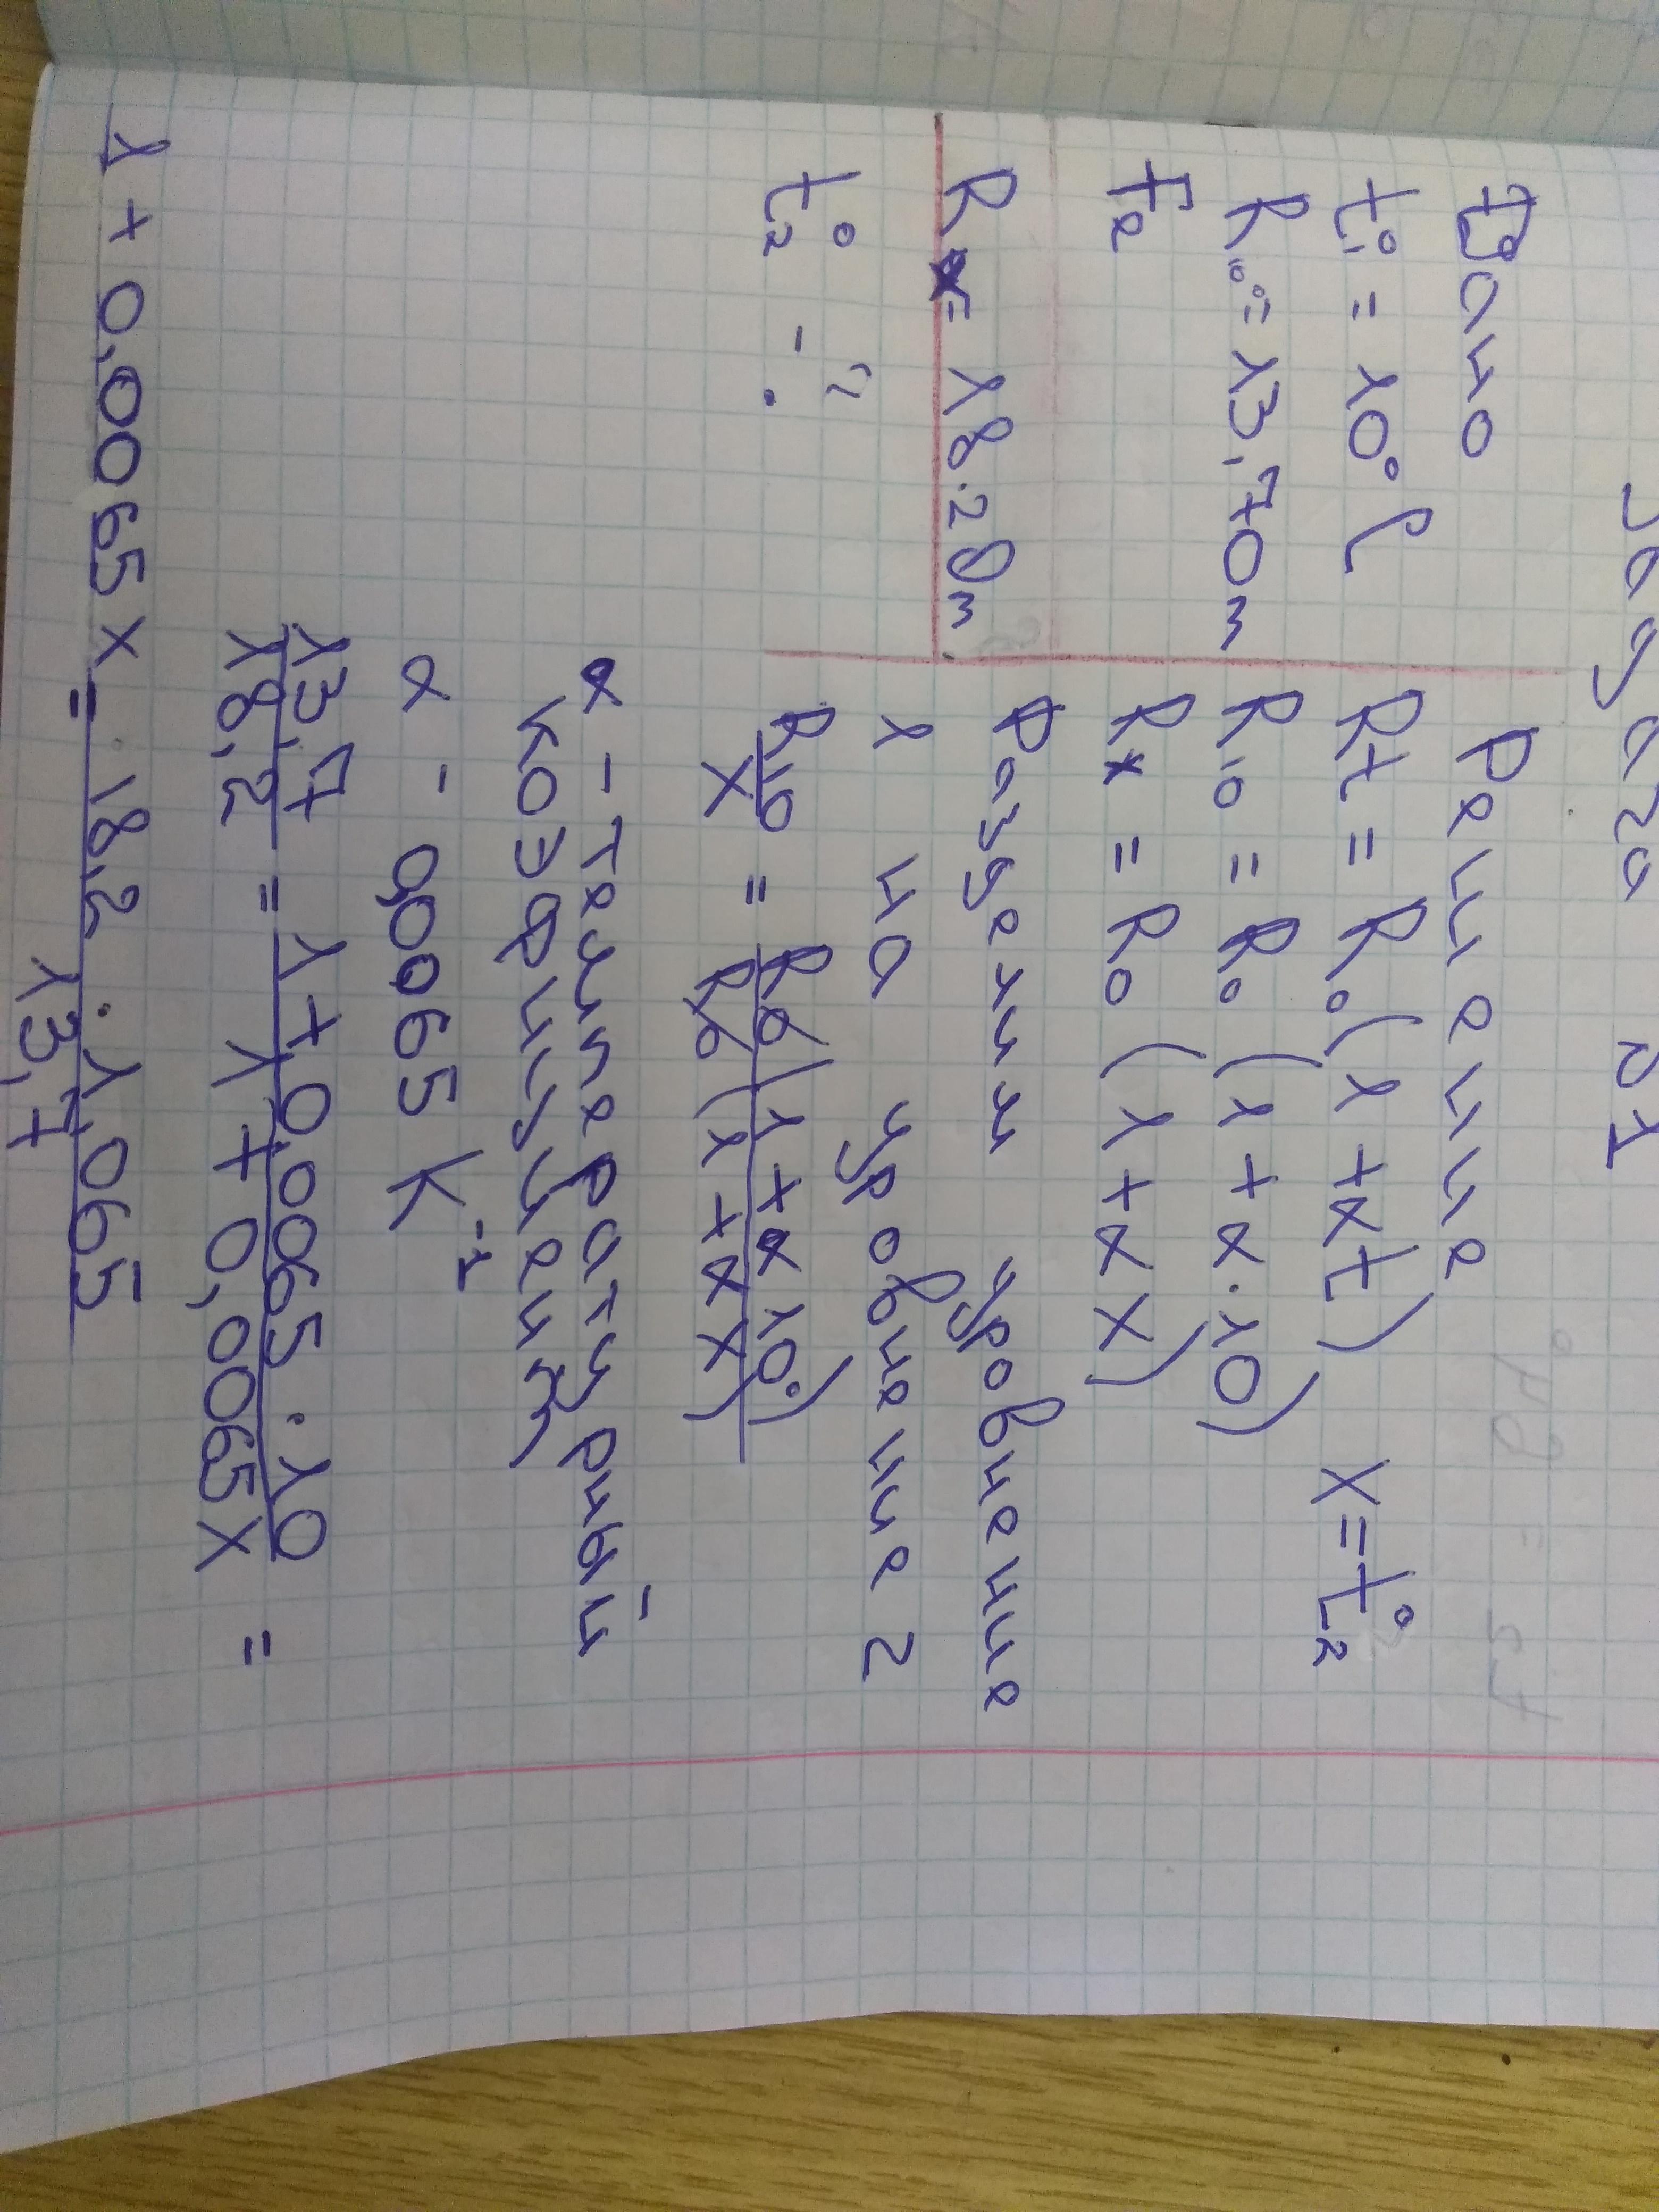 Задача №1
Дано
t₁° = 10°C
R₁₀° = 13,7 Om
Fe
Rx = 18.2 Om
t₂° - ?
Решение
Rt = R₀(1 + αt) x = t₂°
R₁₀ = R₀ (1 + α · 10)
Rx = R₀ (1 + αx)
Разделим уровнение
1 на уровнение 2
R10/x = R₀(1 + α10°)/R₀(1 + αx)
α - температурный
коэффициент
α - 0,0065 K⁻¹
13,7/18,2 = 1 + 0,0065 · 10/1 + 0,0065x =
1 + 0,0065x = 18,2 · 1,065/13,7